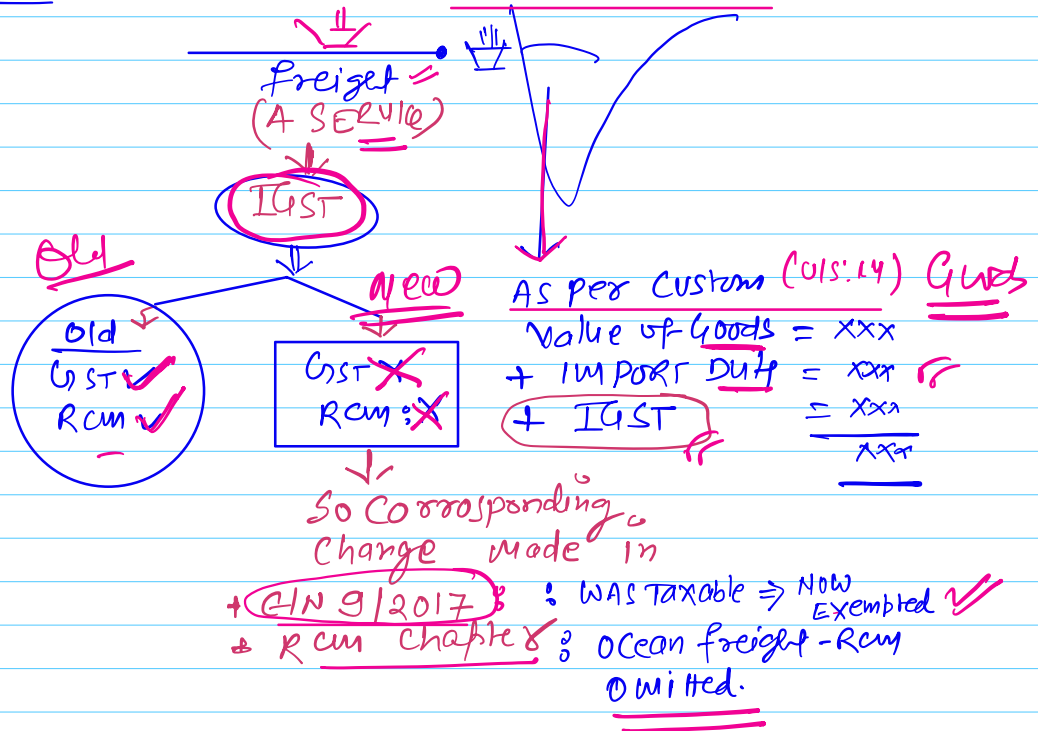 Freight =
(A SERVICE)
IGST
Old
New
Old
GST ✓
RCM ✓
GST ✗
RCM : ✗
As per Custom (U/S: 14) Goods
Value of Goods = xxx
+ IMPORT Duty = xxx
+ IGST = xxx
xxx
So Corrosponding
Change made in
+ E/N 9/2017 : : WAS Taxable ⇒ NOW
EXEMPTED ✓
* RCM Chapter : Ocean freight - RCM
Omitted.